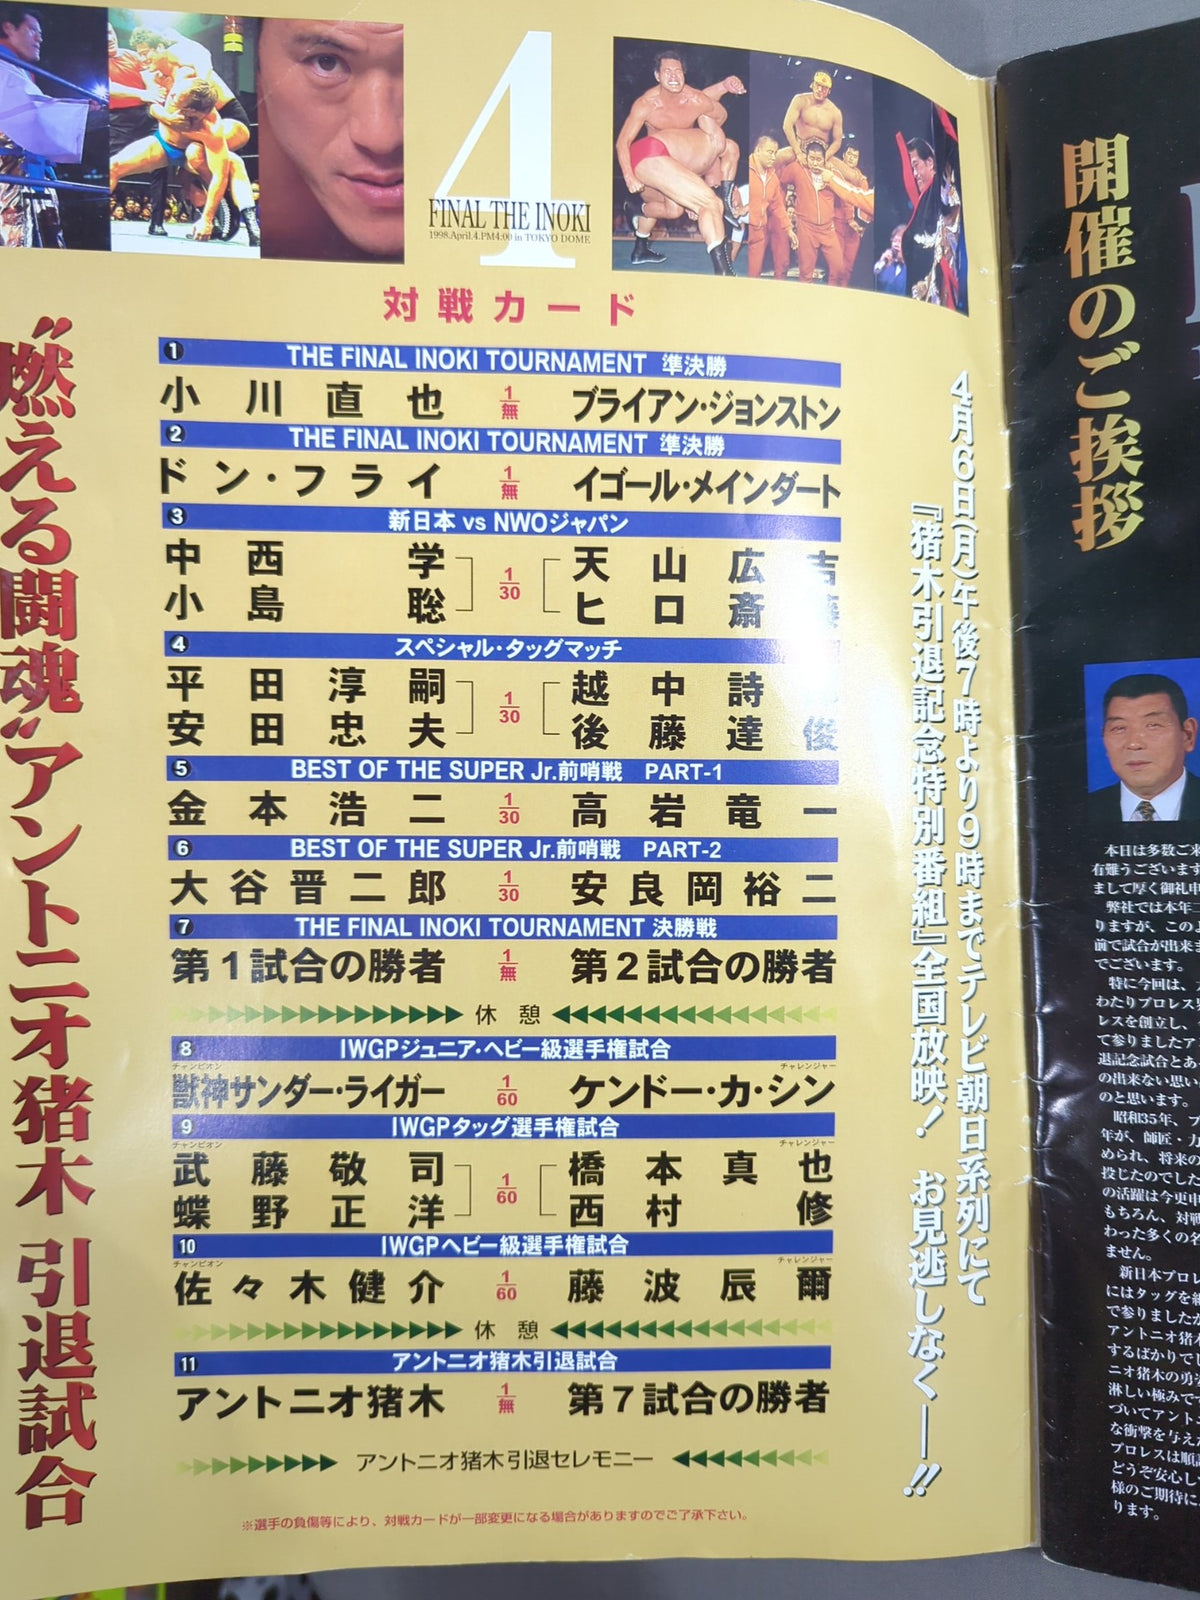 4
FINAL THE INOKI
1998.April.4.PM4:00 in TOKYO DOME
対戦カード
❶ THE FINAL INOKI TOURNAMENT 準決勝
小川直也 1/無 ブライアン・ジョンストン
❷ THE FINAL INOKI TOURNAMENT 準決勝
ドン・フライ 1/無 イゴール・メインダート
❸ 新日本 vs NWOジャパン
中西学 天山広吉
1/30
小島聡 ヒロ斎藤
❹ スペシャル・タッグマッチ
平田淳嗣 越中詩
1/30
安田忠夫 後藤達俊
❺ BEST OF THE SUPER Jr.前哨戦 PART-1
金本浩二 1/30 高岩竜一
❻ BEST OF THE SUPER Jr.前哨戦 PART-2
大谷晋二郎 1/30 安良岡裕二
❼ THE FINAL INOKI TOURNAMENT 決勝戦
第1試合の勝者 1/無 第2試合の勝者
休憩
8 IWGPジュニア・ヘビー級選手権試合
チャンピオン チャレンジャー
獣神サンダー・ライガー 1/60 ケンドー・カ・シン
9 IWGPタッグ選手権試合
チャンピオン チャレンジャー
武藤敬司 橋本真也
1/60
蝶野正洋 西村修
10 IWGPヘビー級選手権試合
チャンピオン チャレンジャー
佐々木健介 1/60 藤波辰爾
休憩
11 アントニオ猪木引退試合
アントニオ猪木 1/無 第7試合の勝者
アントニオ猪木引退セレモニー
※選手の負傷等により、対戦カードが一部変更になる場合がありますのでご了承下さい。
4月6日(月)午後7時より9時までテレビ朝日系列にて
『猪木引退記念特別番組』全国放映! お見逃しなくー!!
“燃える闘魂”アントニオ猪木 引退試合
開催のご挨拶
本日は多数ご来
有難うございます
まして厚く御礼申
弊社では本年二
りますが、このよ
前で試合が出来ま
でございます。
特に今回は、
わたりプロレス
レスを創立し、
て参りましたア
退記念試合とあ
の出来ない思い
のと思います。
昭和35年、プ
年が、師匠・力
められ、将来の
投じたのでした
の活躍は今更申
もちろん、対戦
わった多くの名
ません。
新日本プロレ
にはタッグを組
で参りましたが
アントニオ猪木
するばかりでし
ニオ猪木の勇姿
淋しい極みで
づいてアント
な衝撃を与え
プロレスは順調
どうぞ安心し
様のご期待に
ります。